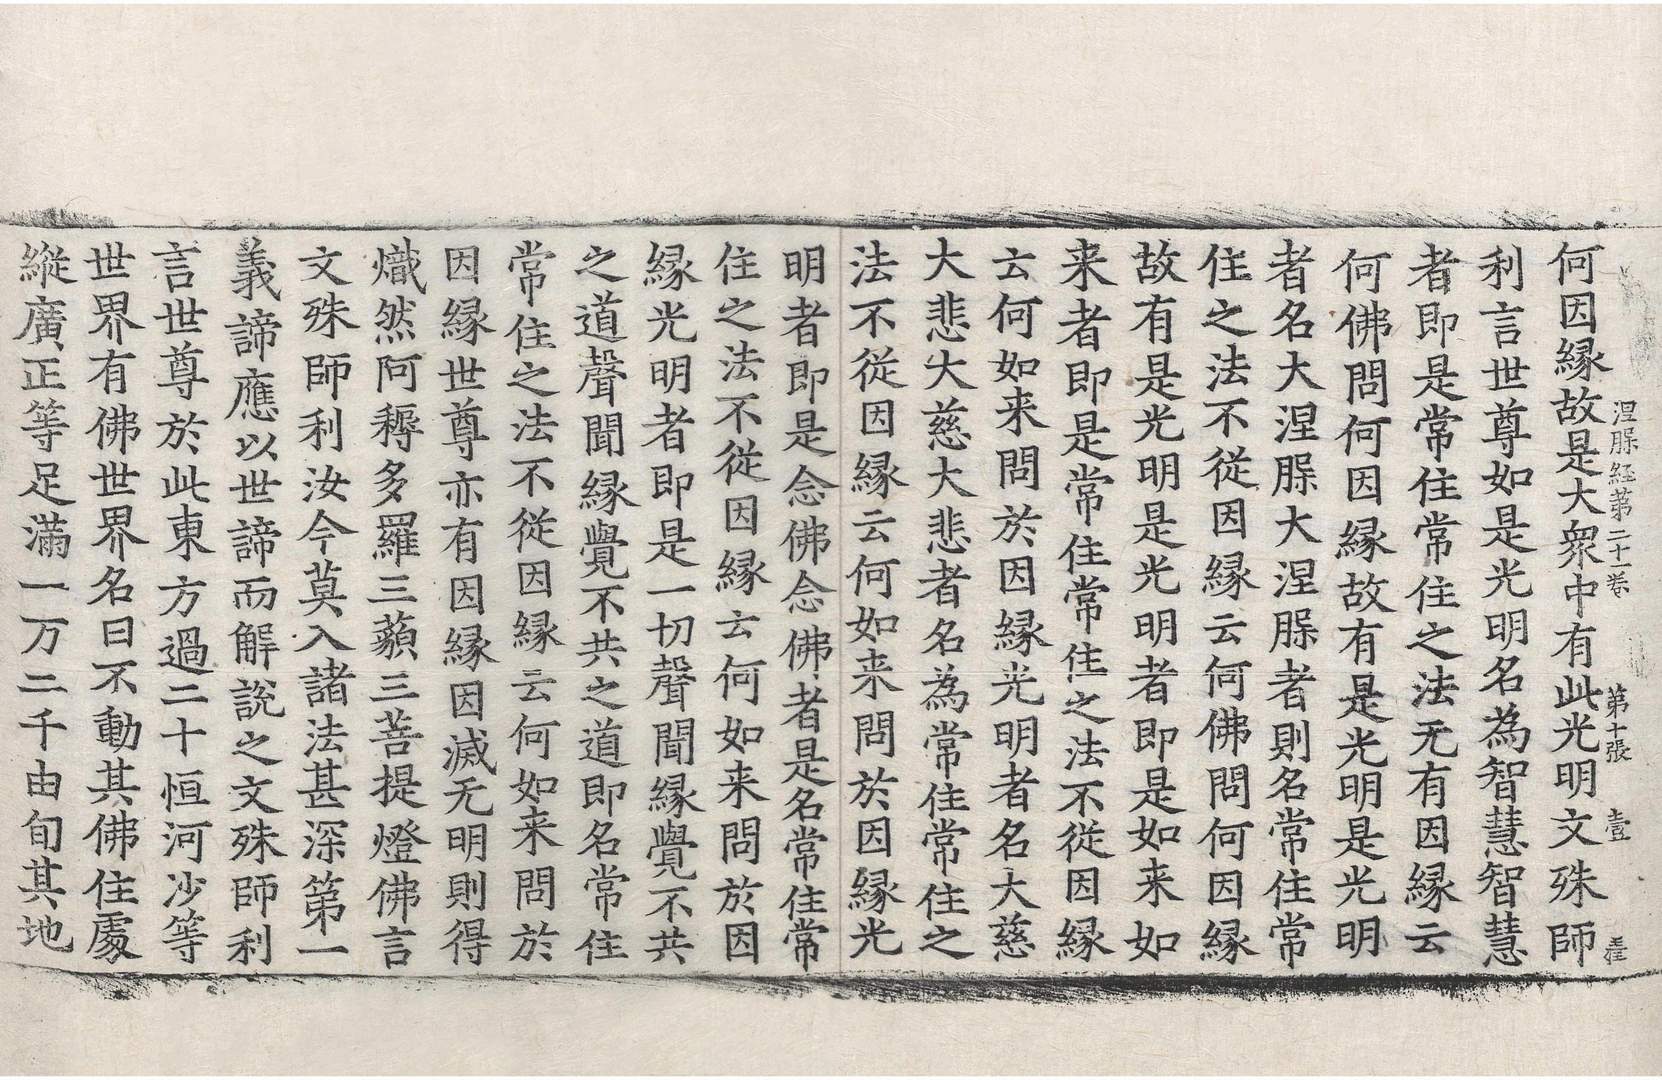 涅槃経第二十一卷　第十張　壹
何因縁故是大衆中有此光明文殊師
利言世尊如是光明名為智慧智慧
者即是常住常住之法无有因縁云
何佛問何因縁故有是光明是光明
者名大涅槃大涅槃者則名常住常
住之法不従因縁云何佛問何因縁
故有是光明是光明者即是如来如
来者即是常住常住之法不従因縁
云何如来問於因縁光明者名大慈
大悲大慈大悲者名為常住常住之
法不従因縁云何如来問於因縁光
明者即是念佛念佛者是名常住常
住之法不従因縁云何如来問於因
縁光明者即是一切聲聞縁覺不共
之道聲聞縁覺不共之道即名常住
常住之法不従因縁云何如来問於
因縁世尊亦有因縁因滅无明則得
熾然阿耨多羅三藐三菩提燈佛言
文殊師利汝今莫入諸法甚深第一
義諦應以世諦而解說之文殊師利
言世尊於此東方過二十恒河沙等
世界有佛世界名曰不動其佛住處
縱廣正等足滿一万二千由旬其地